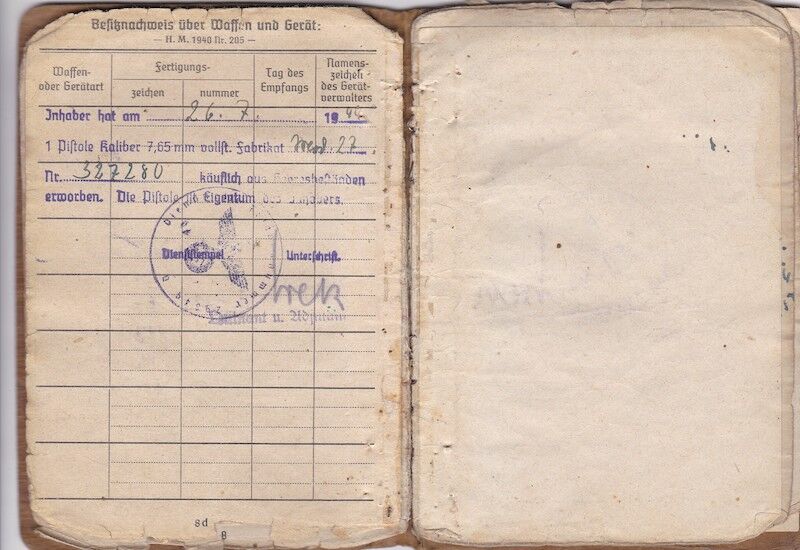 Besitznachweis über Waffen und Gerät:
— H. M. 1940 Nr. 205 —
Waffen-
oder Geräteart
Fertigungs-
zeichen
nummer
Tag des
Empfangs
Namens-
zeichen
des Gerät-
verwalters
Inhaber hat am 26. 7. 19
1 Pistole Kaliber 7,65 mm vollst. Fabrikat Mod 27
Nr. 327280 käuflich aus Heeresbeständen
erworben. Die Pistole ist Eigentum des Inhabers.
Dienststempel
Unterschrift.
Leutnant u. Adjutant
8d
8